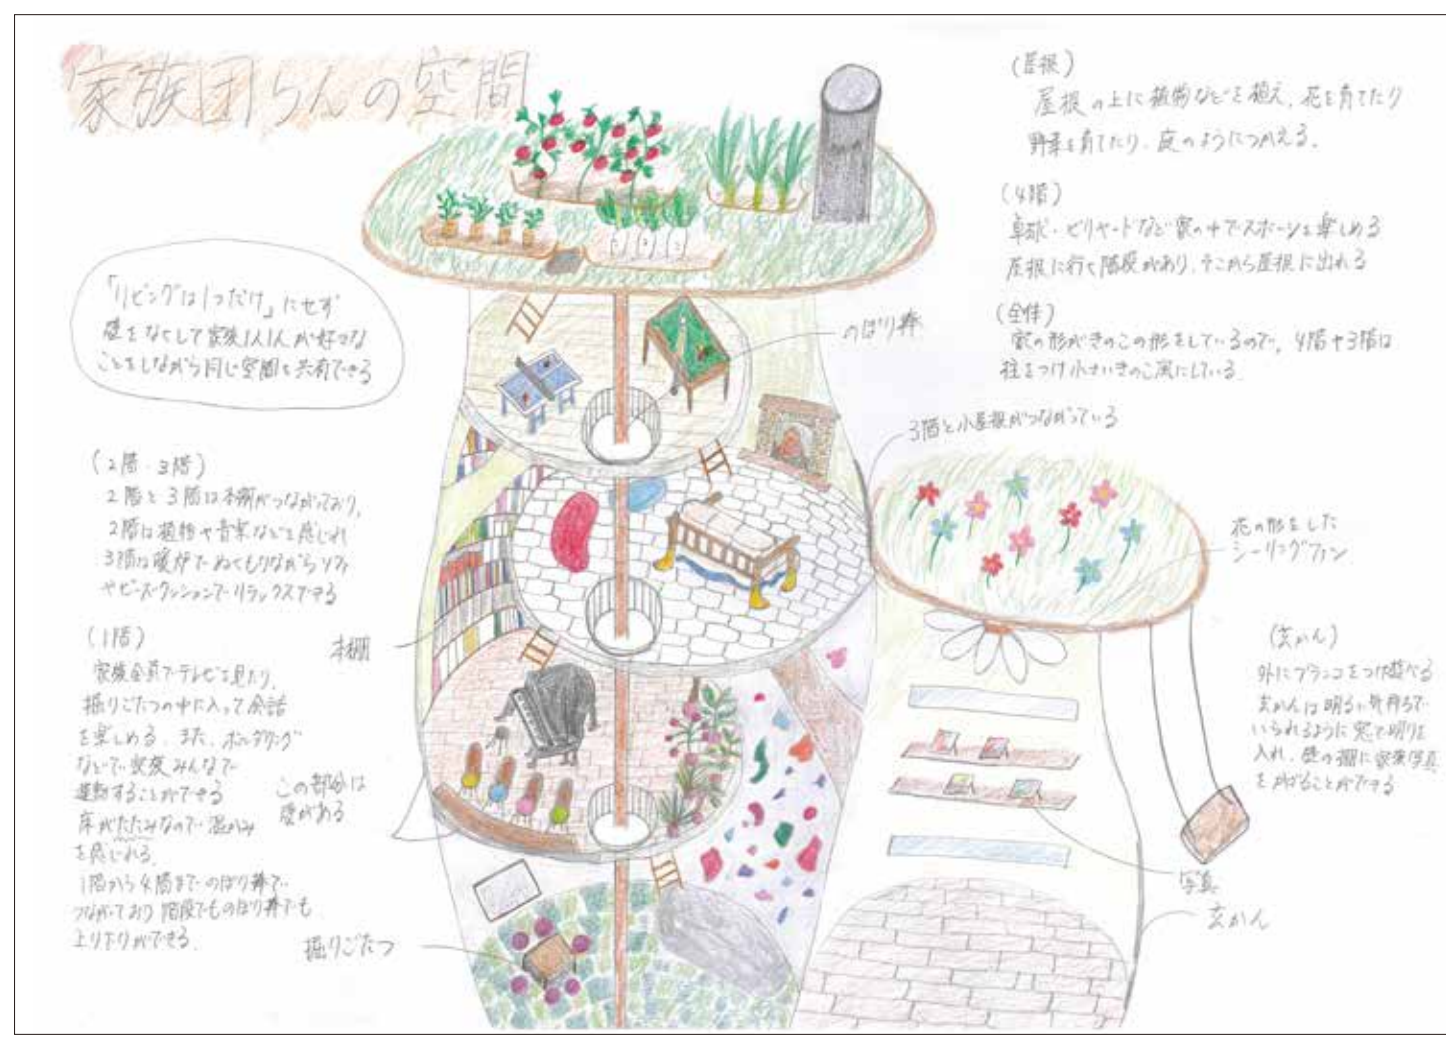 家族団らんの空間
「リビングは1つだけ」にせず
壁をなくして家族1人1人が好きな
ことをしながら同じ空間を共有できる
(2階・3階)
2階と3階は本棚がつながっており、
2階は植物や音楽などを感じれ
3階は暖炉でぬくもりながらソファ
やビーズクッションでリラックスできる
本棚
(1階)
家族全員でテレビを見たり、
掘りごたつの中に入って会話
を楽しめる。また、ボルダリング
などで家族みんなで
運動することができる
床がたたみなので温かみ
を感じれる。
1階から4階までのぼり棒で
つながっており階段でものぼり棒でも
上り下りができる。
この部分は
壁がある
掘りごたつ
のぼり棒
(屋根)
屋根の上に植物などを植え、花を育てたり
野菜を育てたり、庭のようにつかえる。
(4階)
卓球・ビリヤードなど家の中でスポーツを楽しめる
屋根に行く階段があり、そこから屋根に出れる
(全体)
家の形がきのこの形をしているので、4階や3階は
柱をつけ小さいきのこ風にしている。
3階と小屋根がつながっている
花の形をした
シーリングファン
(玄かん)
外にブランコをつけ遊べる
玄かんは明るい気持ちで
いられるように窓で明りを
入れ、壁の棚に家族写真
をかざることができる
写真
玄かん